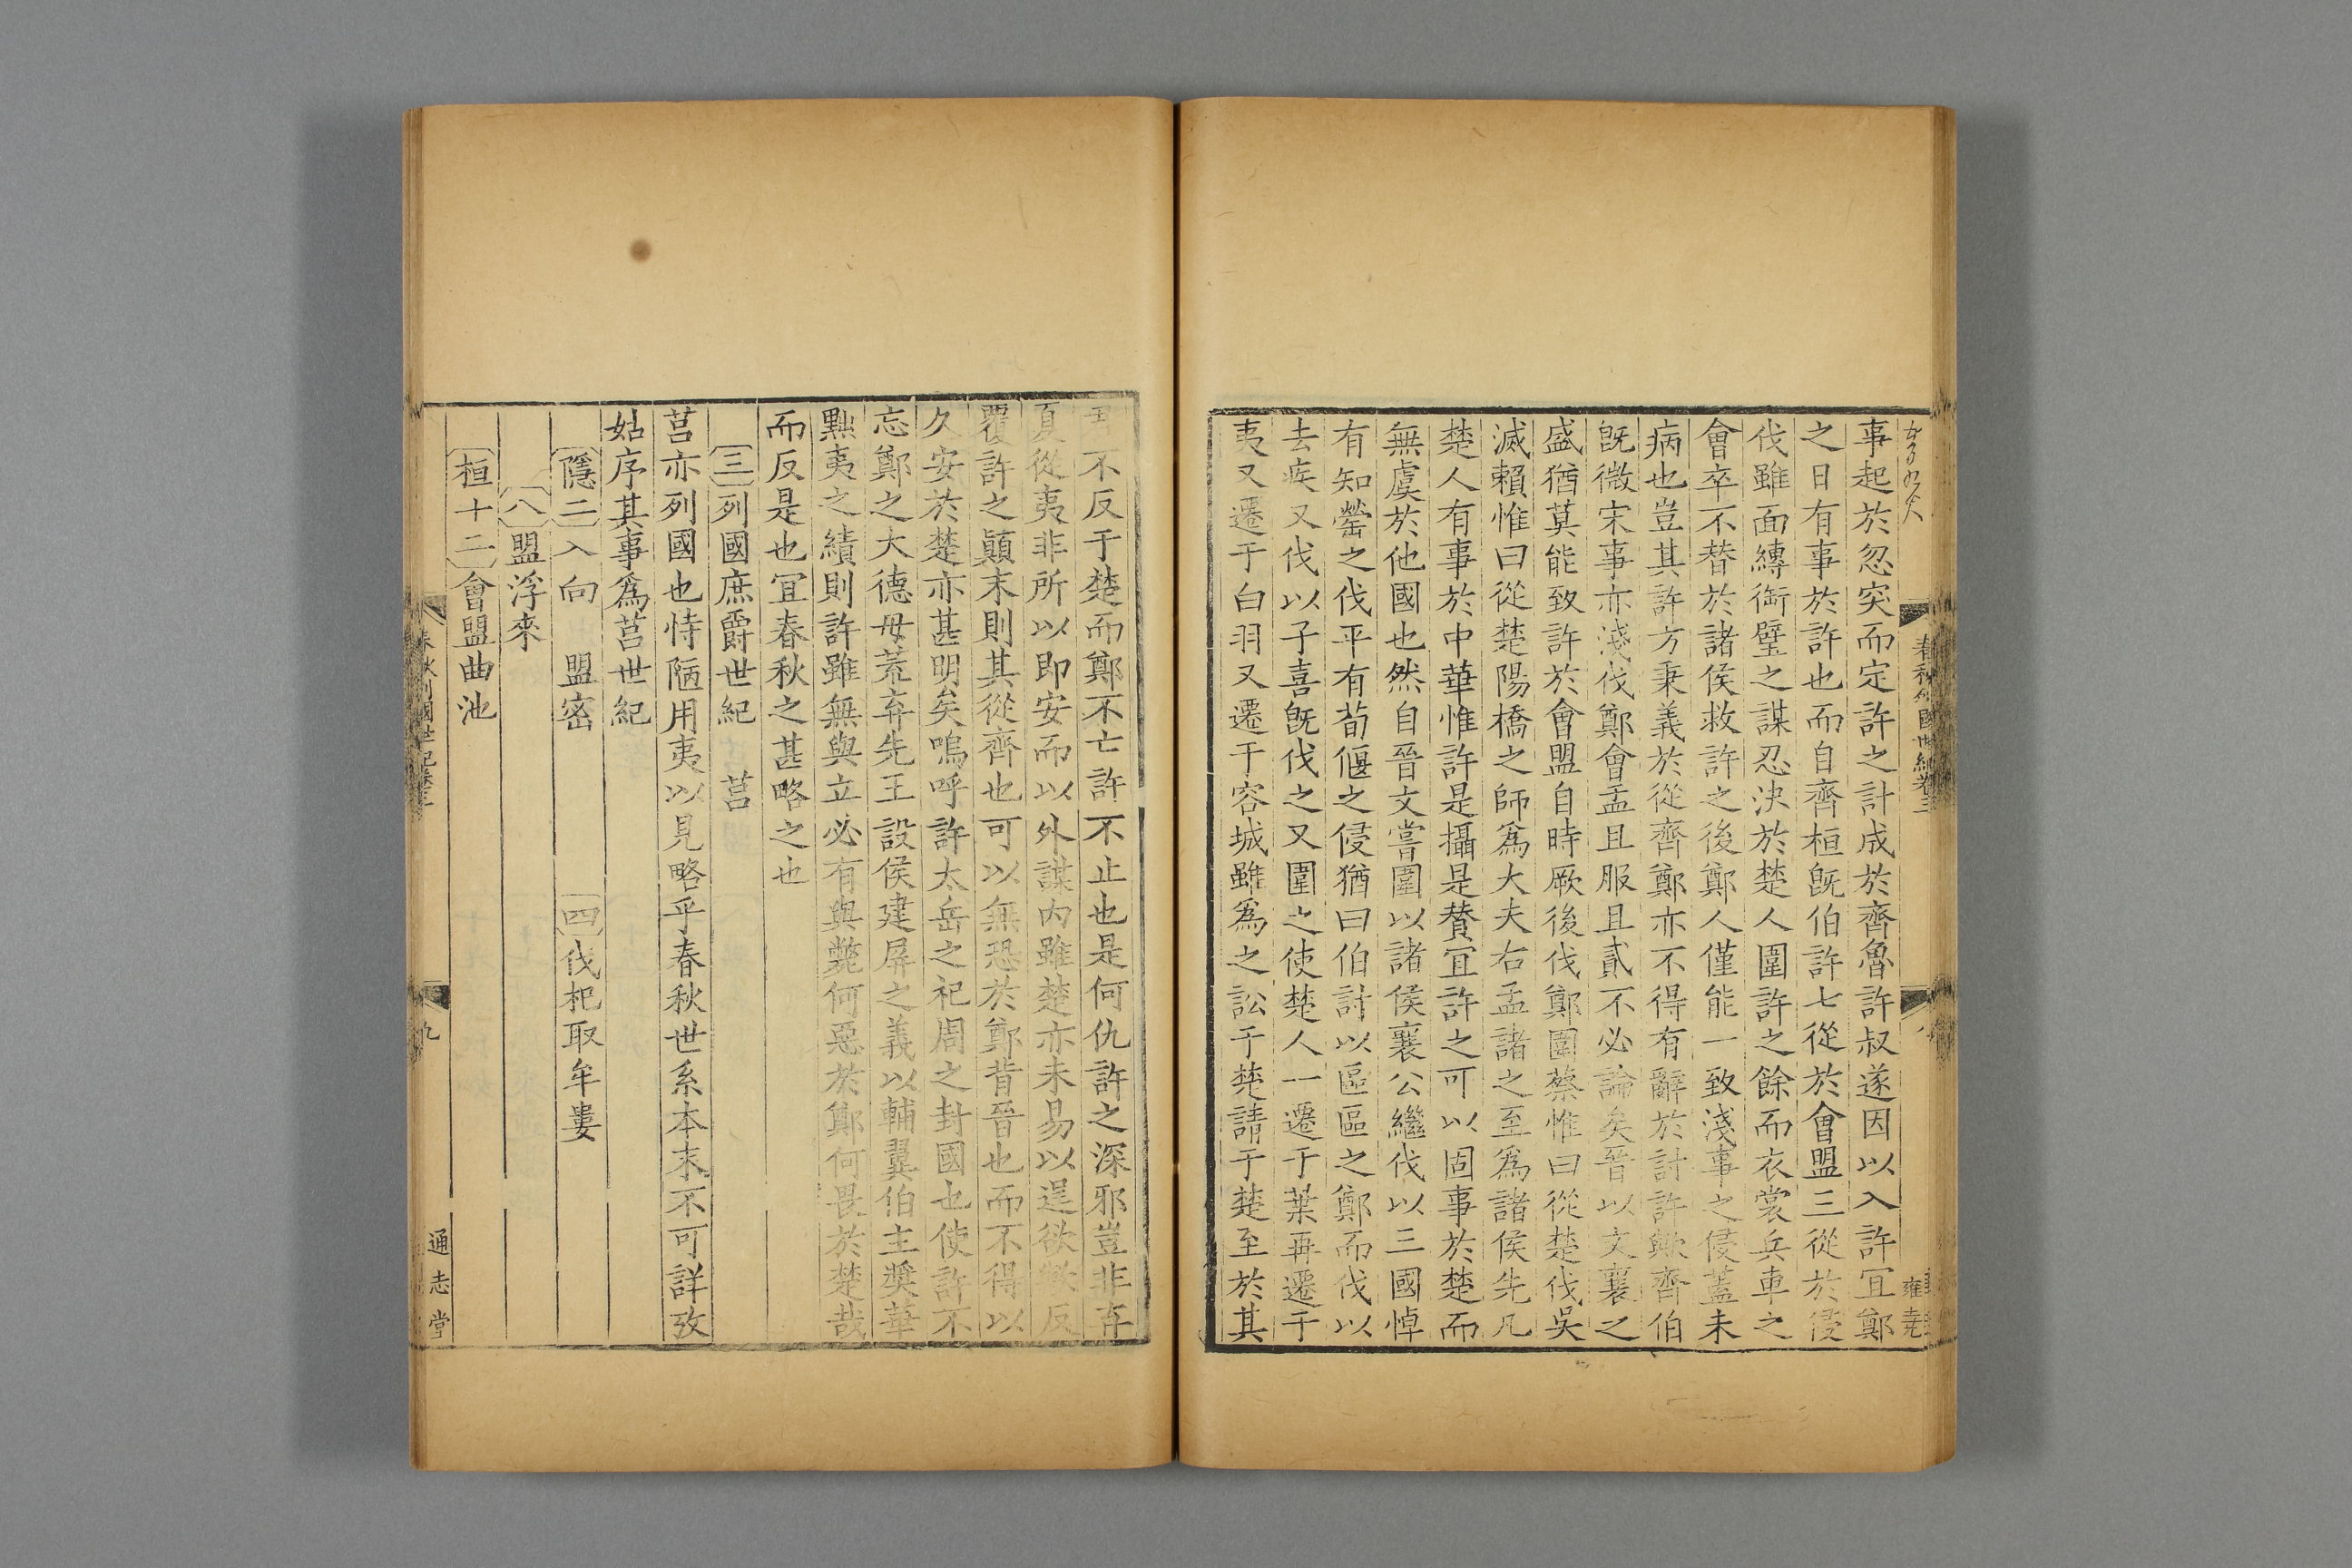 春秋列國世紀卷三
八
雍堯
事起於忽突而定許之計成於齊魯許叔遂因以入許宜鄭
之日有事於許也而自齊桓既伯許七從於會盟三從於侵
伐雖面縳銜璧之謀忍決於楚人圍許之餘而衣裳兵車之
會卒不替於諸侯救許之後鄭人僅能一致淺事之侵蓋未
病也豈其許方秉義於從齊鄭亦不得有辭於討許歟齊伯
既微宋事亦淺伐鄭會盂且服且貳不必論矣晉以文襄之
盛猶莫能致許於會盟自時厥後伐鄭圍蔡惟曰從楚伐吳
滅賴惟曰從楚陽橋之師爲大夫右孟諸之至爲諸侯先凡
楚人有事於中華惟許是攝是賛宜許之可以固事於楚而
無虞於他國也然自晉文嘗圍以諸侯襄公繼伐以三國悼
有知罃之伐平有荀偃之侵猶曰伯討以區區之鄭而伐以
去疾又伐以子喜既伐之又圍之使楚人一遷于葉再遷于
夷又遷于白羽又遷于容城雖爲之訟于楚請于楚至於其
不反于楚而鄭不亡許不止也是何仇許之深邪豈非弃
夏從夷非所以即安而以外謀内雖楚亦未易以逞欲歟反
覆許之顛末則其從齊也可以無恐於鄭背晉也而不得以
久安於楚亦甚明矣嗚呼許太岳之祀周之封國也使許不
忘鄭之大德毋荒弃先王設侯建屏之義以輔翼伯主奬華
黜夷之績則許雖無與立必有與斃何惡於鄭何畏於楚哉
而反是也宜春秋之甚略之也
三列國庶爵世紀 莒
莒亦列國也恃陋用夷以見略乎春秋世系本末不可詳攷
姑序其事爲莒世紀
隱二入向 盟密 四伐杞取牟婁
八盟浮來
桓十二會盟曲池
春秋列國世紀卷三
九
通志堂